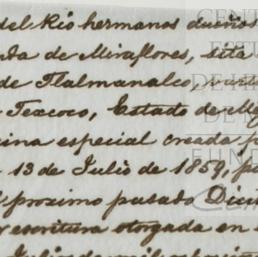 del Rio hermanos dueños
da de Miraflores, sita
de Tlalmanalco,
Texcoco, Estado de
ina especial creada
13 de Julio de 1859,
proximo pasado
escritura otorgada en